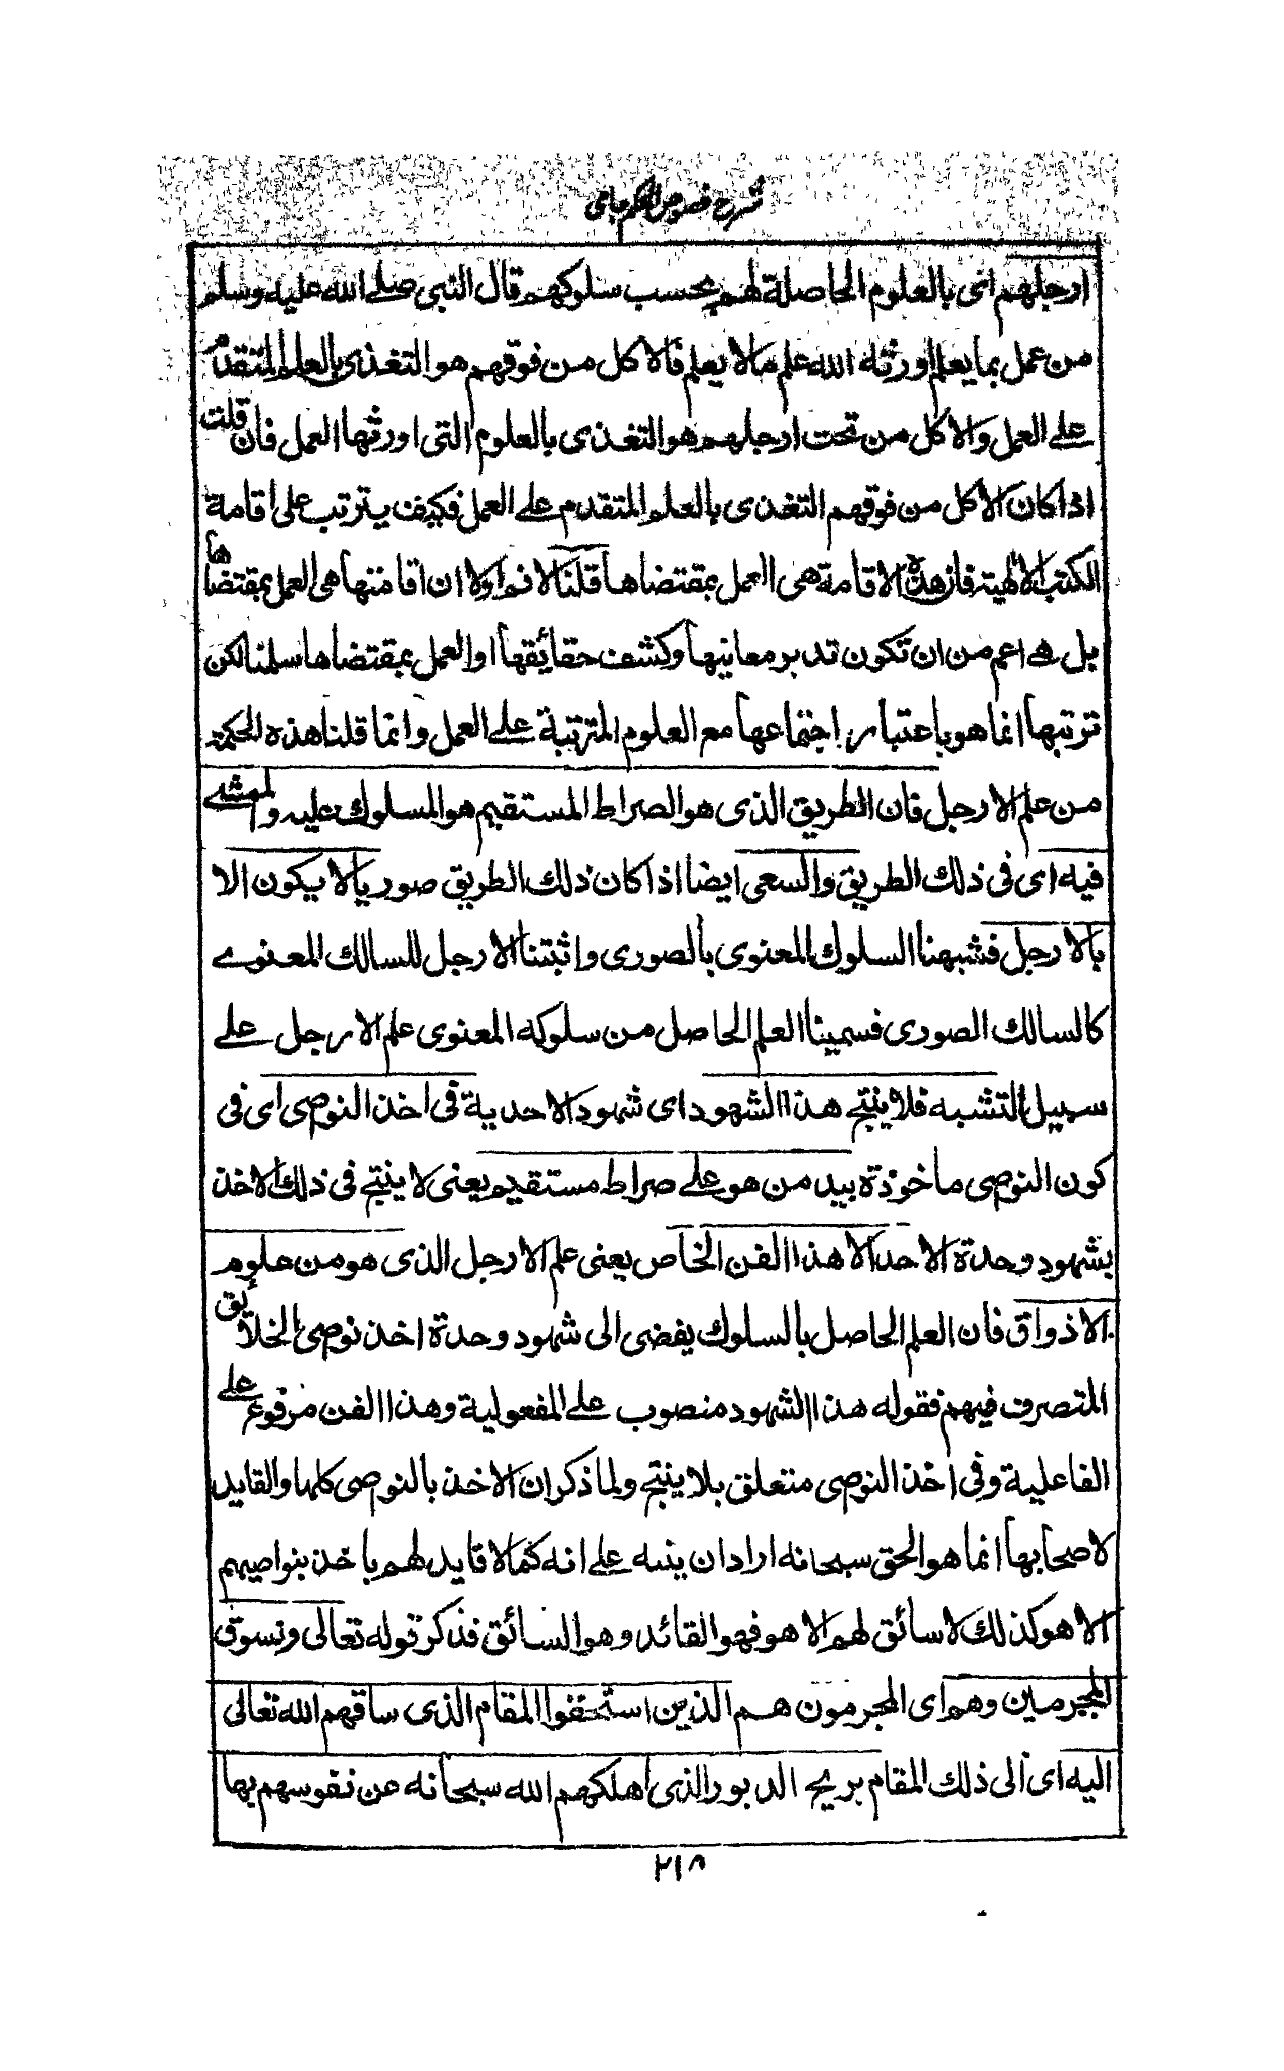 شرح فصوص الحكم جامى
ارجلهم اى بالعلوم الحاصلة لهم بحسب سلوكهم قال النبى صلى الله عليه وسلم
من عمل بما يعلم اورثه الله علم مالا يعلم فالاكل من فوقهم هو التغذى بالعلم المتقدم
على العمل والاكل من تحت ارجلهم هو التغذى بالعلوم التى اورثها العمل فان قلت
اذا كان الاكل من فوقهم التغذى بالعلم المتقدم على العمل فكيف يترتب على اقامة
الكتب الالهية فان هذه الاقامة هى العمل بمقتضاها قلنا لا نم اولا ان اقامتها هى العمل بمقتضاها
بل هى اعم من ان تكون تدبر معانيها وكشف حقائقها او العمل بمقتضاها سلمنا لكن
ترتبها انما هو باعتبار اجتماعها مع العلوم المترتبة على العمل وانما قلنا هذه الحكمة
من علم الارجل فان الطريق الذى هو الصراط المستقيم هو المسلوك عليه والمشى
فيه اى فى ذلك الطريق والسعى ايضا اذا كان ذلك الطريق صوريا لا يكون الا
بالارجل فشبهنا السلوك المعنوى بالصورى واثبتنا الارجل للسالك المعنوى
كالسالك الصورى فسمينا العلم الحاصل من سلوكه المعنوى علم الارجل على
سبيل التشبه فلا ينتج هذا الشهود اى شهود الاحدية فى اخذ النوصى اى فى
كون النوصى ماخوذة بيد من هو على صراط مستقيم يعنى لا ينتج فى ذلك الاخذ
بشهود وحدة الاحد الا هذا الفن الخاص يعنى علم الارجل الذى هو من علوم
الاذواق فان العلم الحاصل بالسلوك يفضى الى شهود وحدة اخذ نوصى الخلايق
المتصرف فيهم فقوله هذا الشهود منصوب على المفعولية وهذا الفن مرفوع على
الفاعلية وفى اخذ النوصى متعلق بلا ينتج ولما ذكر ان الاخذ بالنوصى كلها والقايد
لاصحابها انما هو الحق سبحانه اراد ان ينبه على انه كما لا قايد لهم باخذ بنواصيهم
الا هو كذلك لا سائق لهم الا هو فهو القائد وهو السائق فذكر قوله تعالى ونسوق
المجرمين وهم اى المجرمون هم الذين استحقوا المقام الذى ساقهم الله تعالى
اليه اى الى ذلك المقام بريح الدبور الذى اهلكهم الله سبحانه عن نفوسهم بها
٢١٨